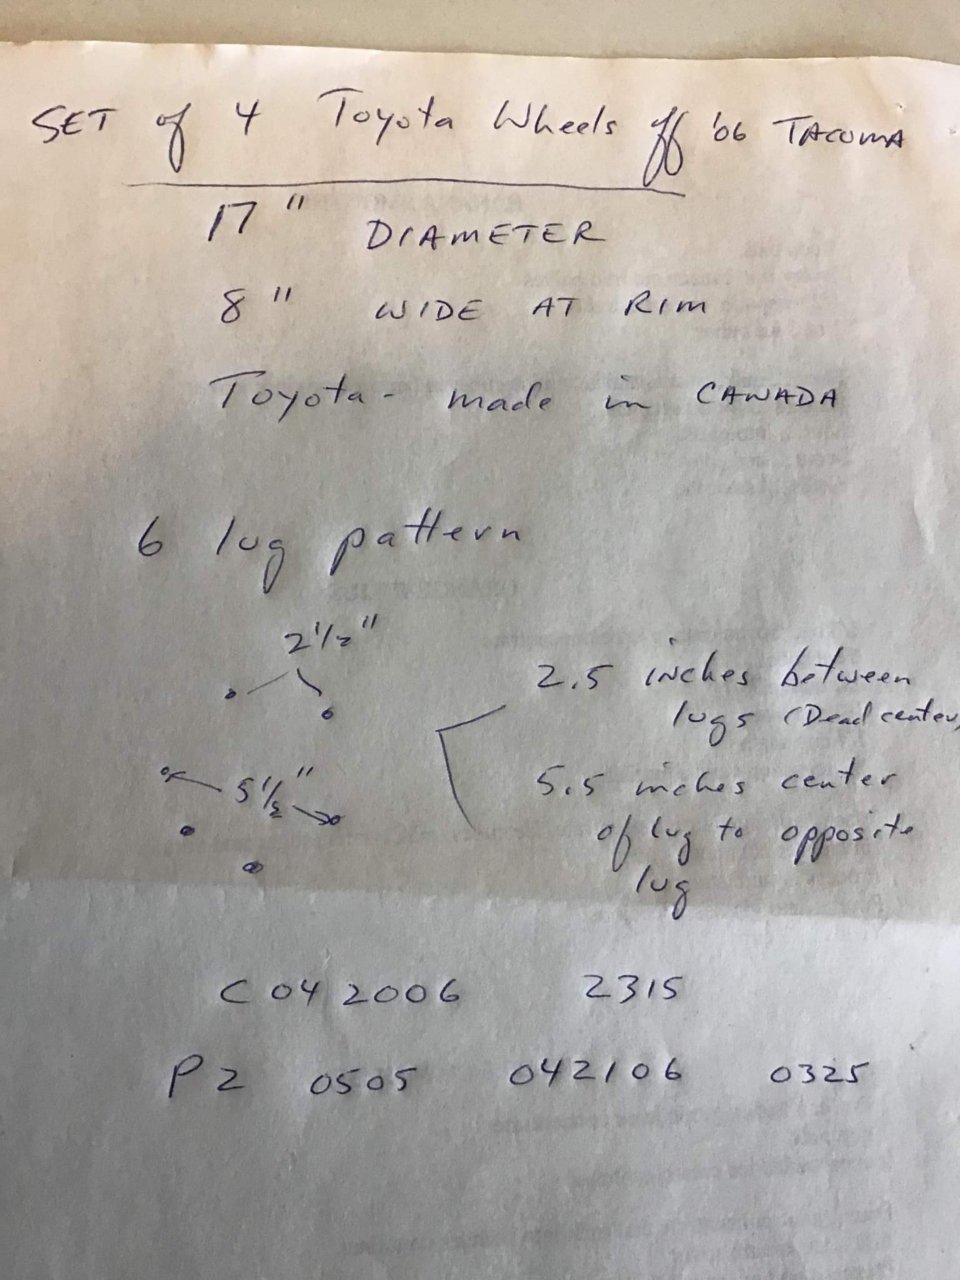 SET of 4 Toyota Wheels off '06 TACOMA
17" DIAMETER
8" WIDE AT RIM
Toyota - made in CANADA
6 lug pattern
2 1/2"
2.5 inches between
lugs (Dead center)
5 1/2"
5.5 inches center
of lug to opposite
lug
C 04 2006 2315
P2 0505 042106 0325